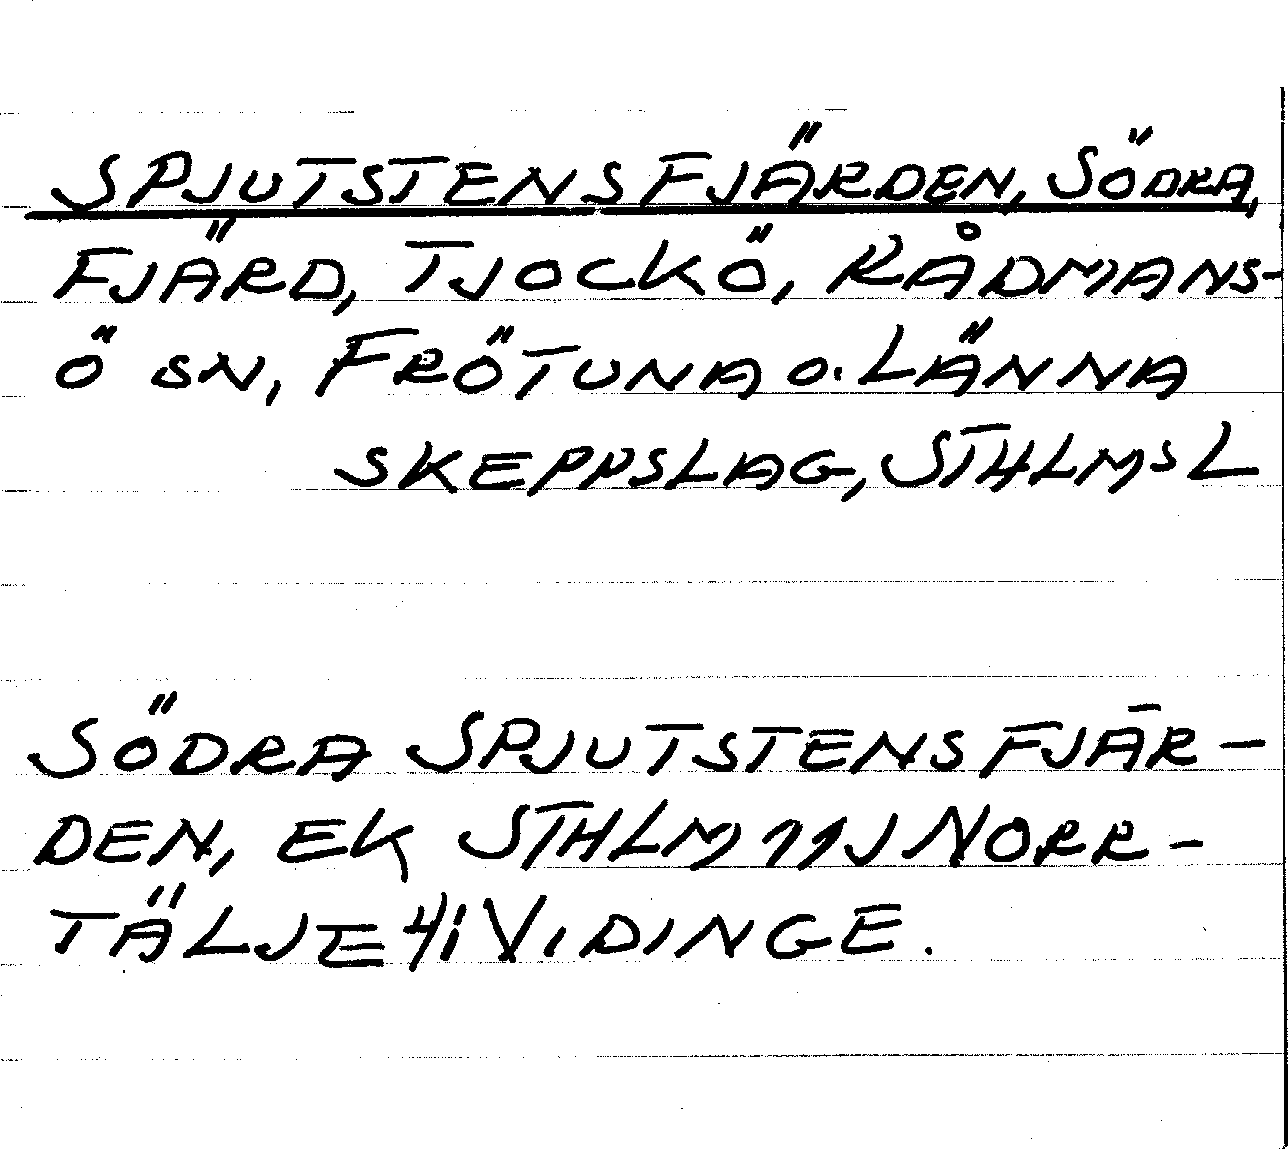 SPJUTSTENSFJÄRDEN, SÖDRA,
FJÄRD, TJOCKÖ, RÅDMANS-
Ö SN, FRÖTUNA O. LÄNNA
SKEPPSLAG, STHLMS L
SÖDRA SPJUTSTENSFJÄR-
DEN, EK STHLM 11J NORR-
TÄLJE 4/i VIDINGE.